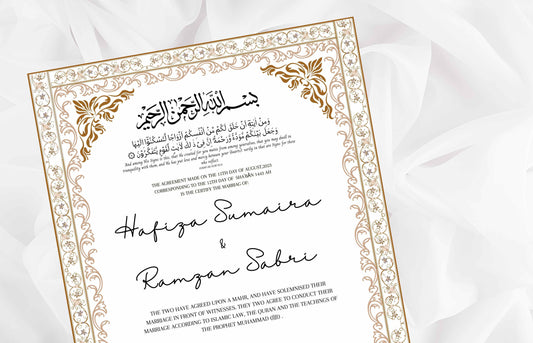 بسم الله الرحمن الرحيم
وَمِنْ آيَاتِهِ أَنْ خَلَقَ لَكُمْ مِنْ أَنْفُسِكُمْ أَزْوَاجًا لِتَسْكُنُوا إِلَيْهَا
وَجَعَلَ بَيْنَكُمْ مَوَدَّةً وَرَحْمَةً إِنَّ فِي ذَلِكَ لَآيَاتٍ لِقَوْمٍ يَتَفَكَّرُونَ
And among His Signs is this, that He created for you mates from among yourselves, that you may dwell in
tranquility with them, and He has put love and mercy between your (hearts): verily in that are Signs for those
who reflect.
THE AGREEMENT MADE ON THE 13TH DAY OF AUGUST,2023
CORRESPONDING TO THE 12TH DAY OF SHA'BĀN 1445 AH
IS THE CERTIFY THE MARRIAG OF:
Hafiza Sumaira
&
Ramzan Sabri
THE TWO HAVE AGREED UPON A MAHR, AND HAVE SOLEMNISED THEIR
MARRIAGE IN FRONT OF WITNESSES. THEY TWO AGREE TO CONDUCT THEIR
MARRIAGE ACCORDING TO ISLAMIC LAW, THE QURAN AND THE TEACHINGS OF
THE PROPHET MUHAMMAD (ﷺ) .